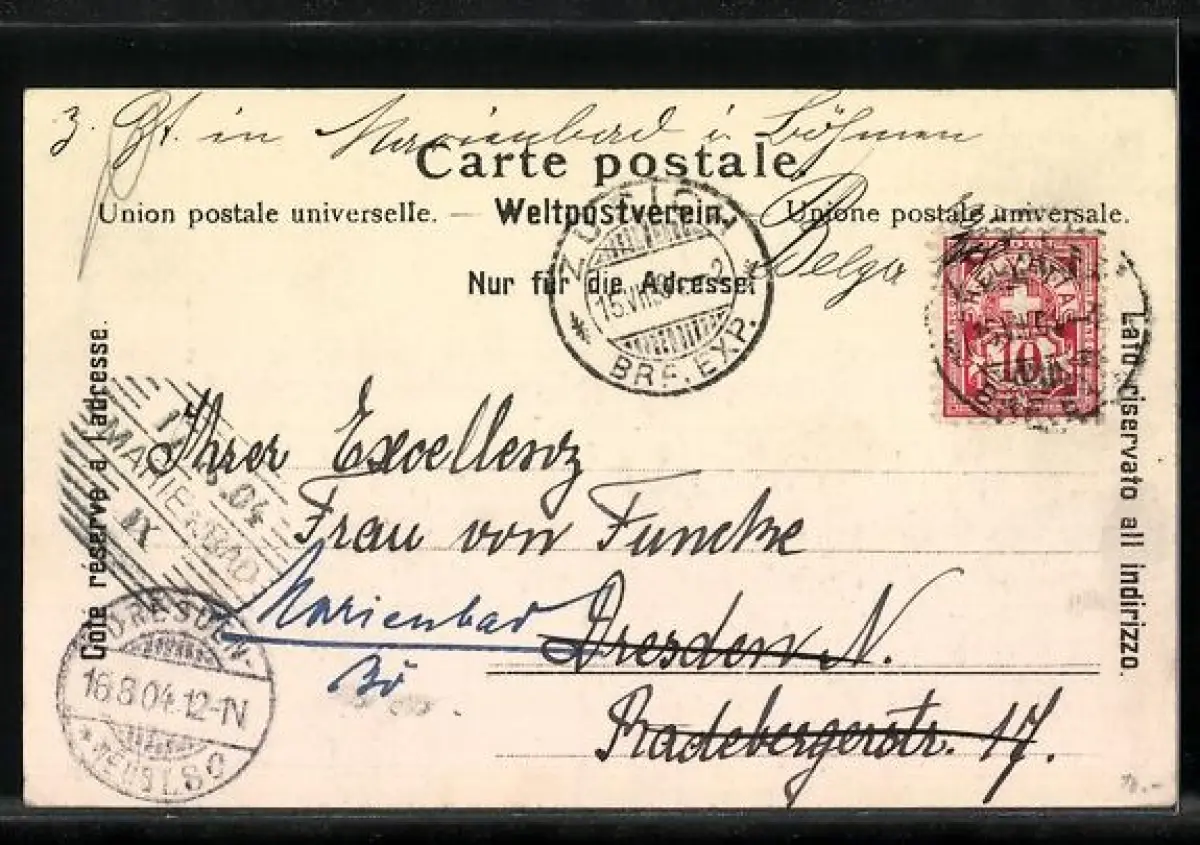 3. Zt. in Marienbad i. Böhmen
Carte postale.
Union postale universelle. — Weltpostverein. — Unione postale universale.
Nur für die Adresse.
Belga
ZÜRICH
15.VIII.04
BRF. EXP.
HELVETIA
10
Côté réservé à l'adresse.
Lato riservato all indirizzo.
MARIENBAD
.04
IX
Ihrer Excellenz
Frau von Funcke
Marienbad
Bö
Dresden N.
Radebergerstr. 17.
DRESDEN-
16.8.04.12-1N
* NEUST. 8 c
10.-